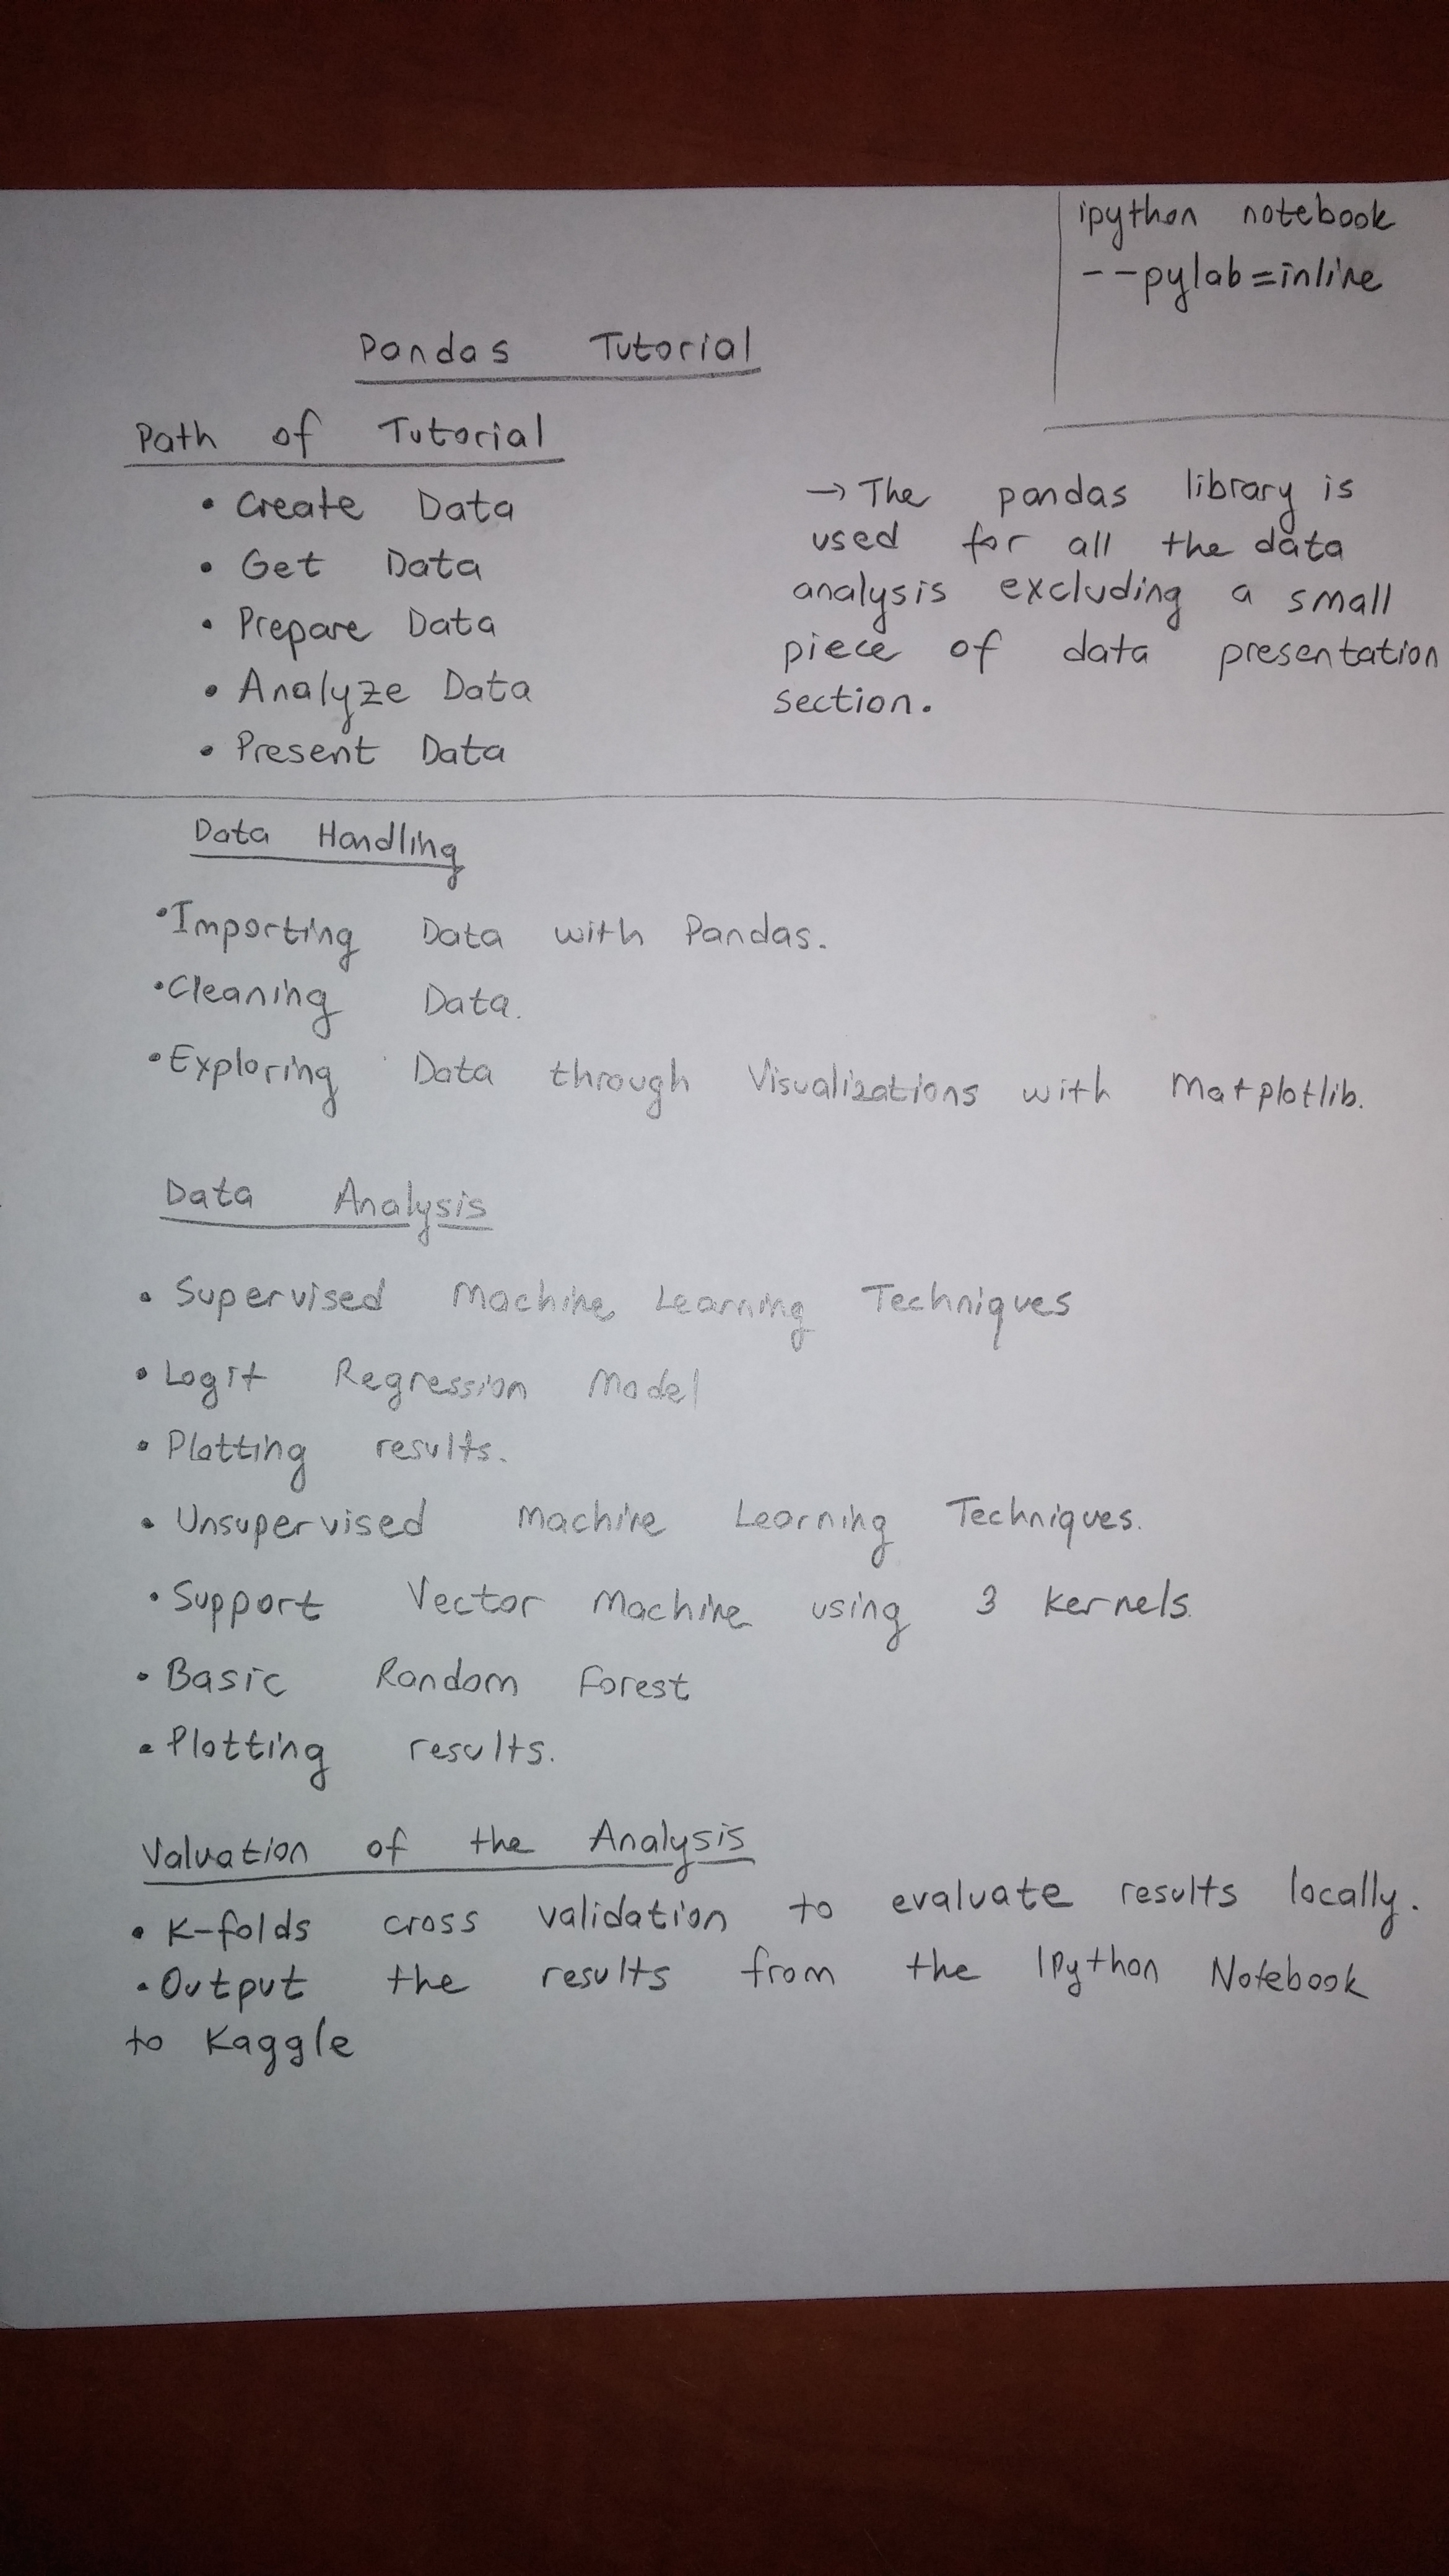 ipython notebook
--pylab=inline
Pandas Tutorial
Path of Tutorial
• Create Data
• Get Data
• Prepare Data
• Analyze Data
• Present Data
→ The pandas library is
used for all the data
analysis excluding a small
piece of data presentation
section.
Data Handling
• Importing Data with Pandas.
• Cleaning Data.
• Exploring Data through Visualizations with Matplotlib.
Data Analysis
• Supervised Machine Learning Techniques
• Logit Regression Model
• Plotting results.
• Unsupervised Machine Learning Techniques.
• Support Vector Machine using 3 kernels.
• Basic Random Forest
• Plotting results.
Valuation of the Analysis
• K-folds cross validation to evaluate results locally.
• Output the results from the IPython Notebook
to Kaggle